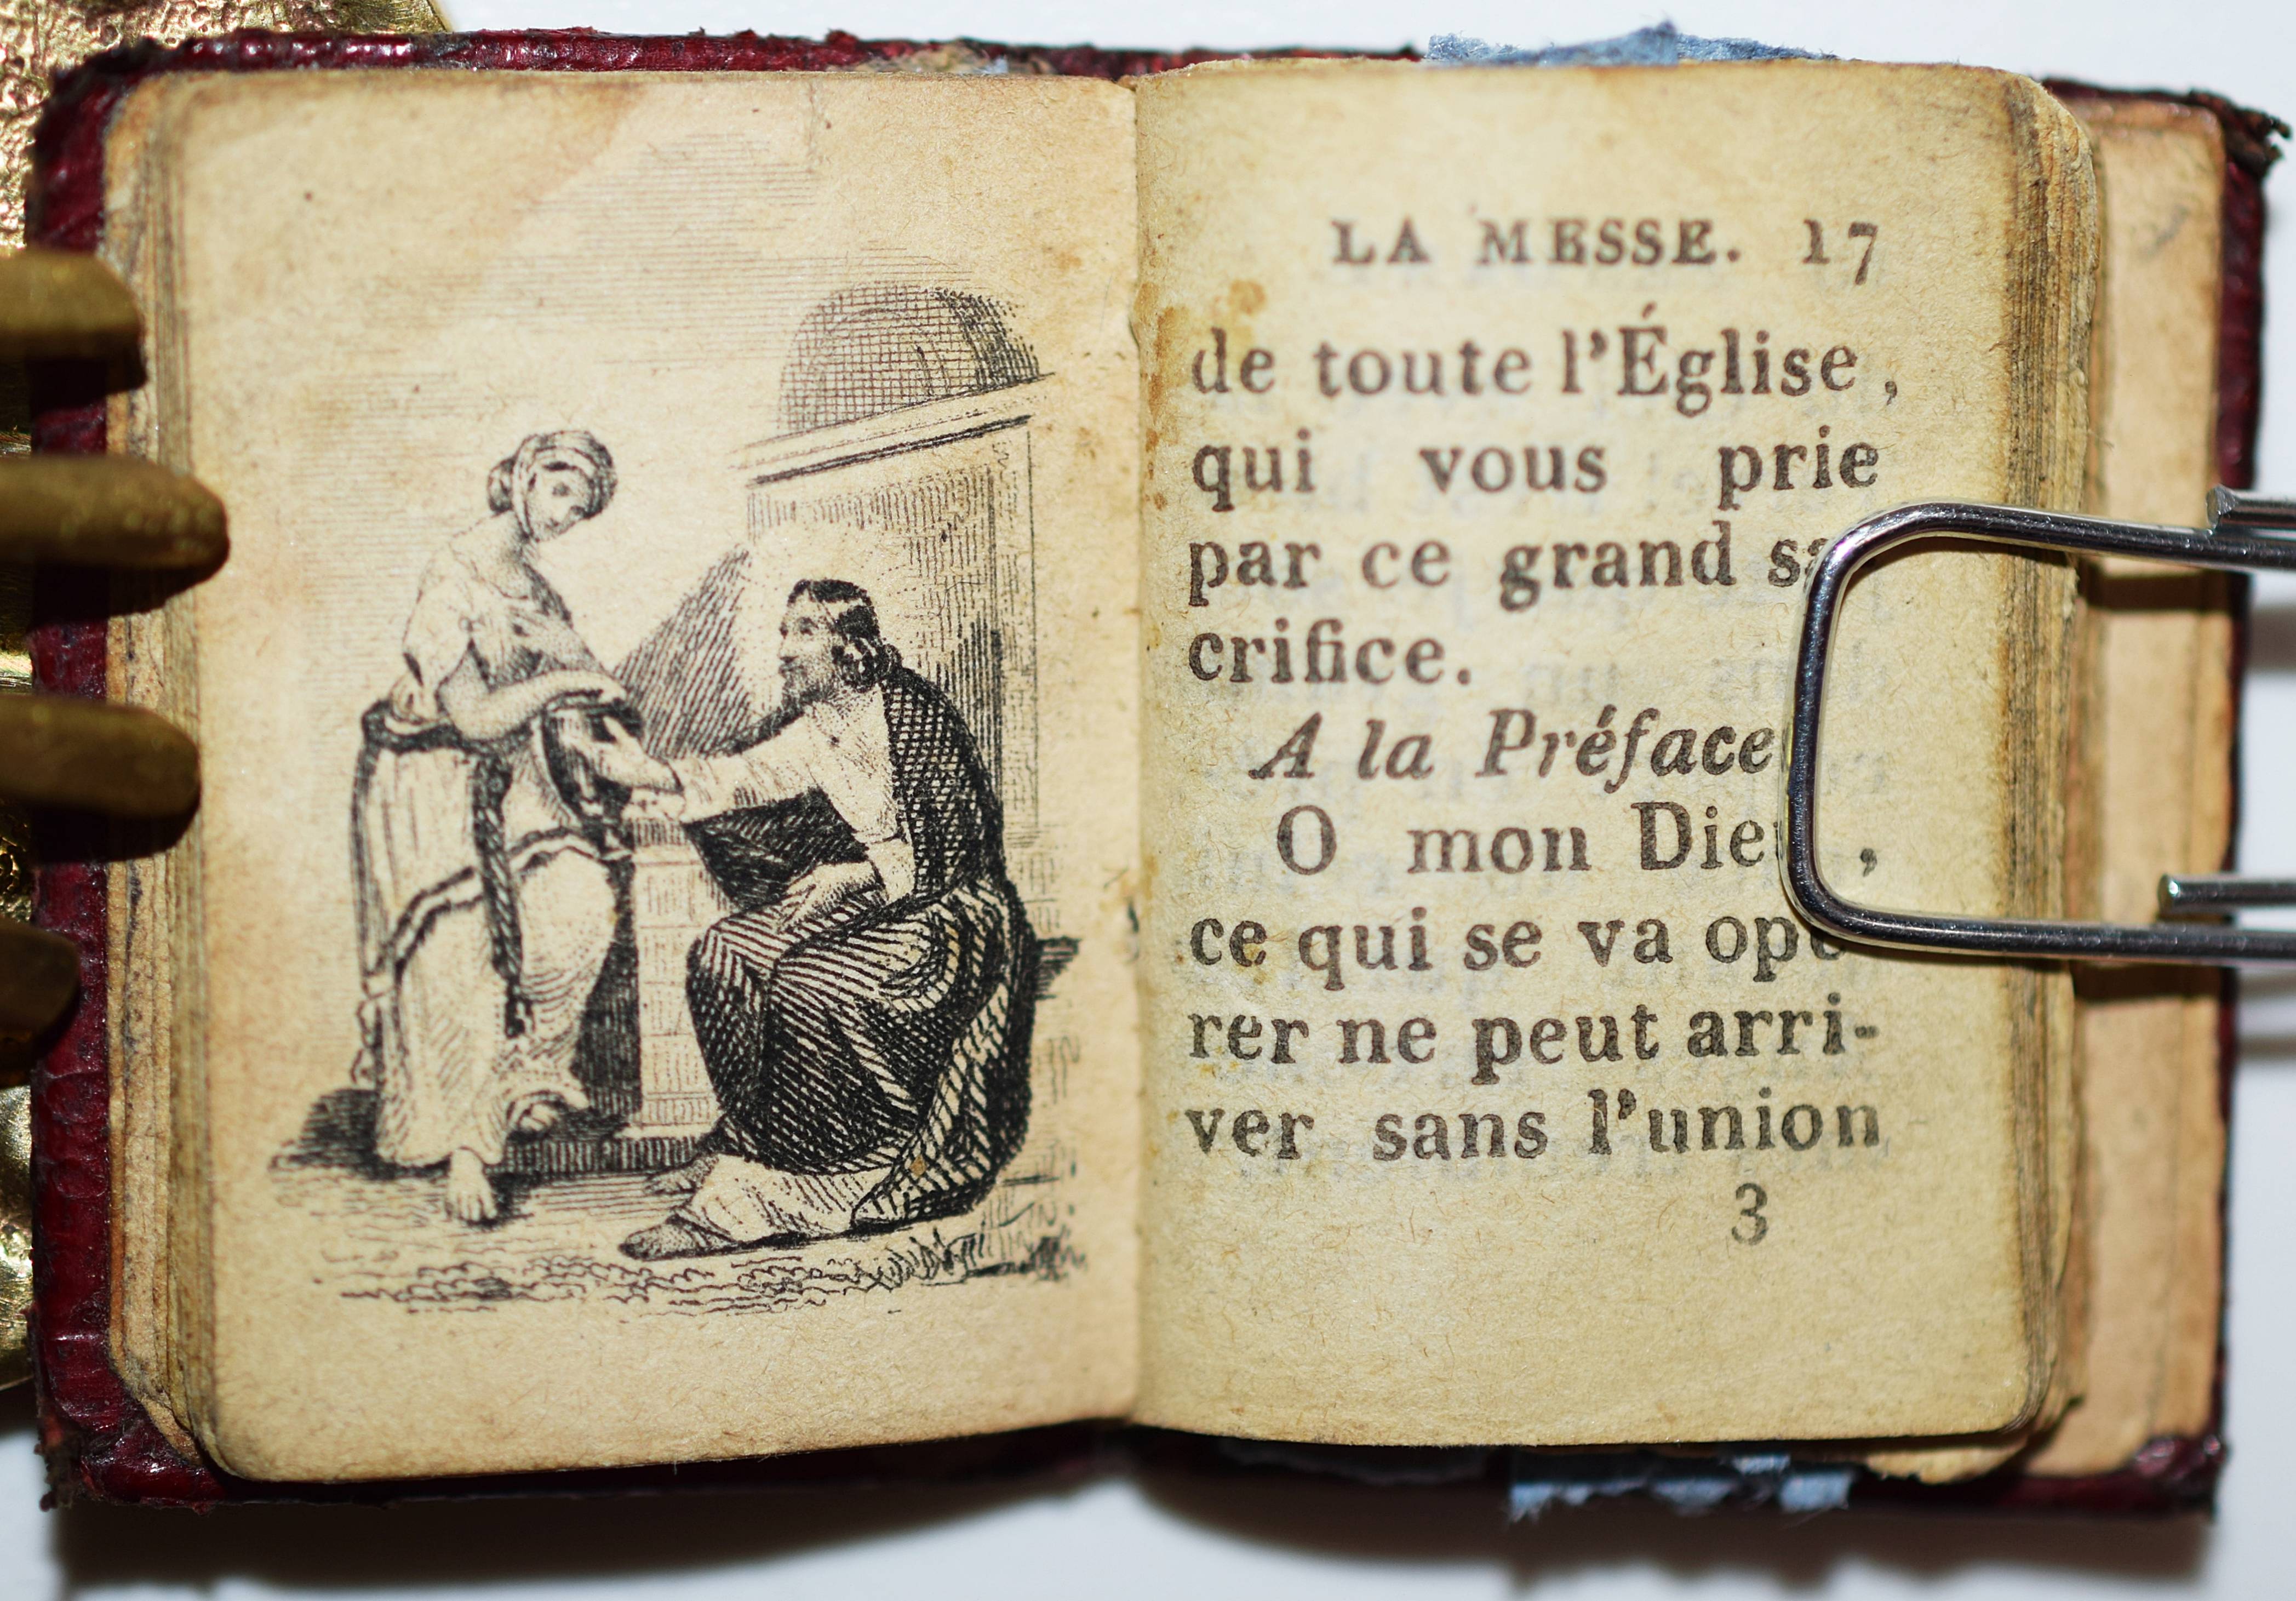 LA MESSE. 17
de toute l'Église,
qui vous prie
par ce grand sa
crifice.
A la Préface
O mon Dieu,
ce qui se va opé
rer ne peut arri-
ver sans l'union
3